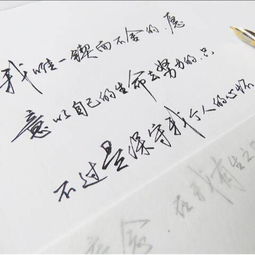 我唯一锲而不舍的 愿
意以自己的生命去努力的 只
不过是保守我个人的心怀
在我有生之